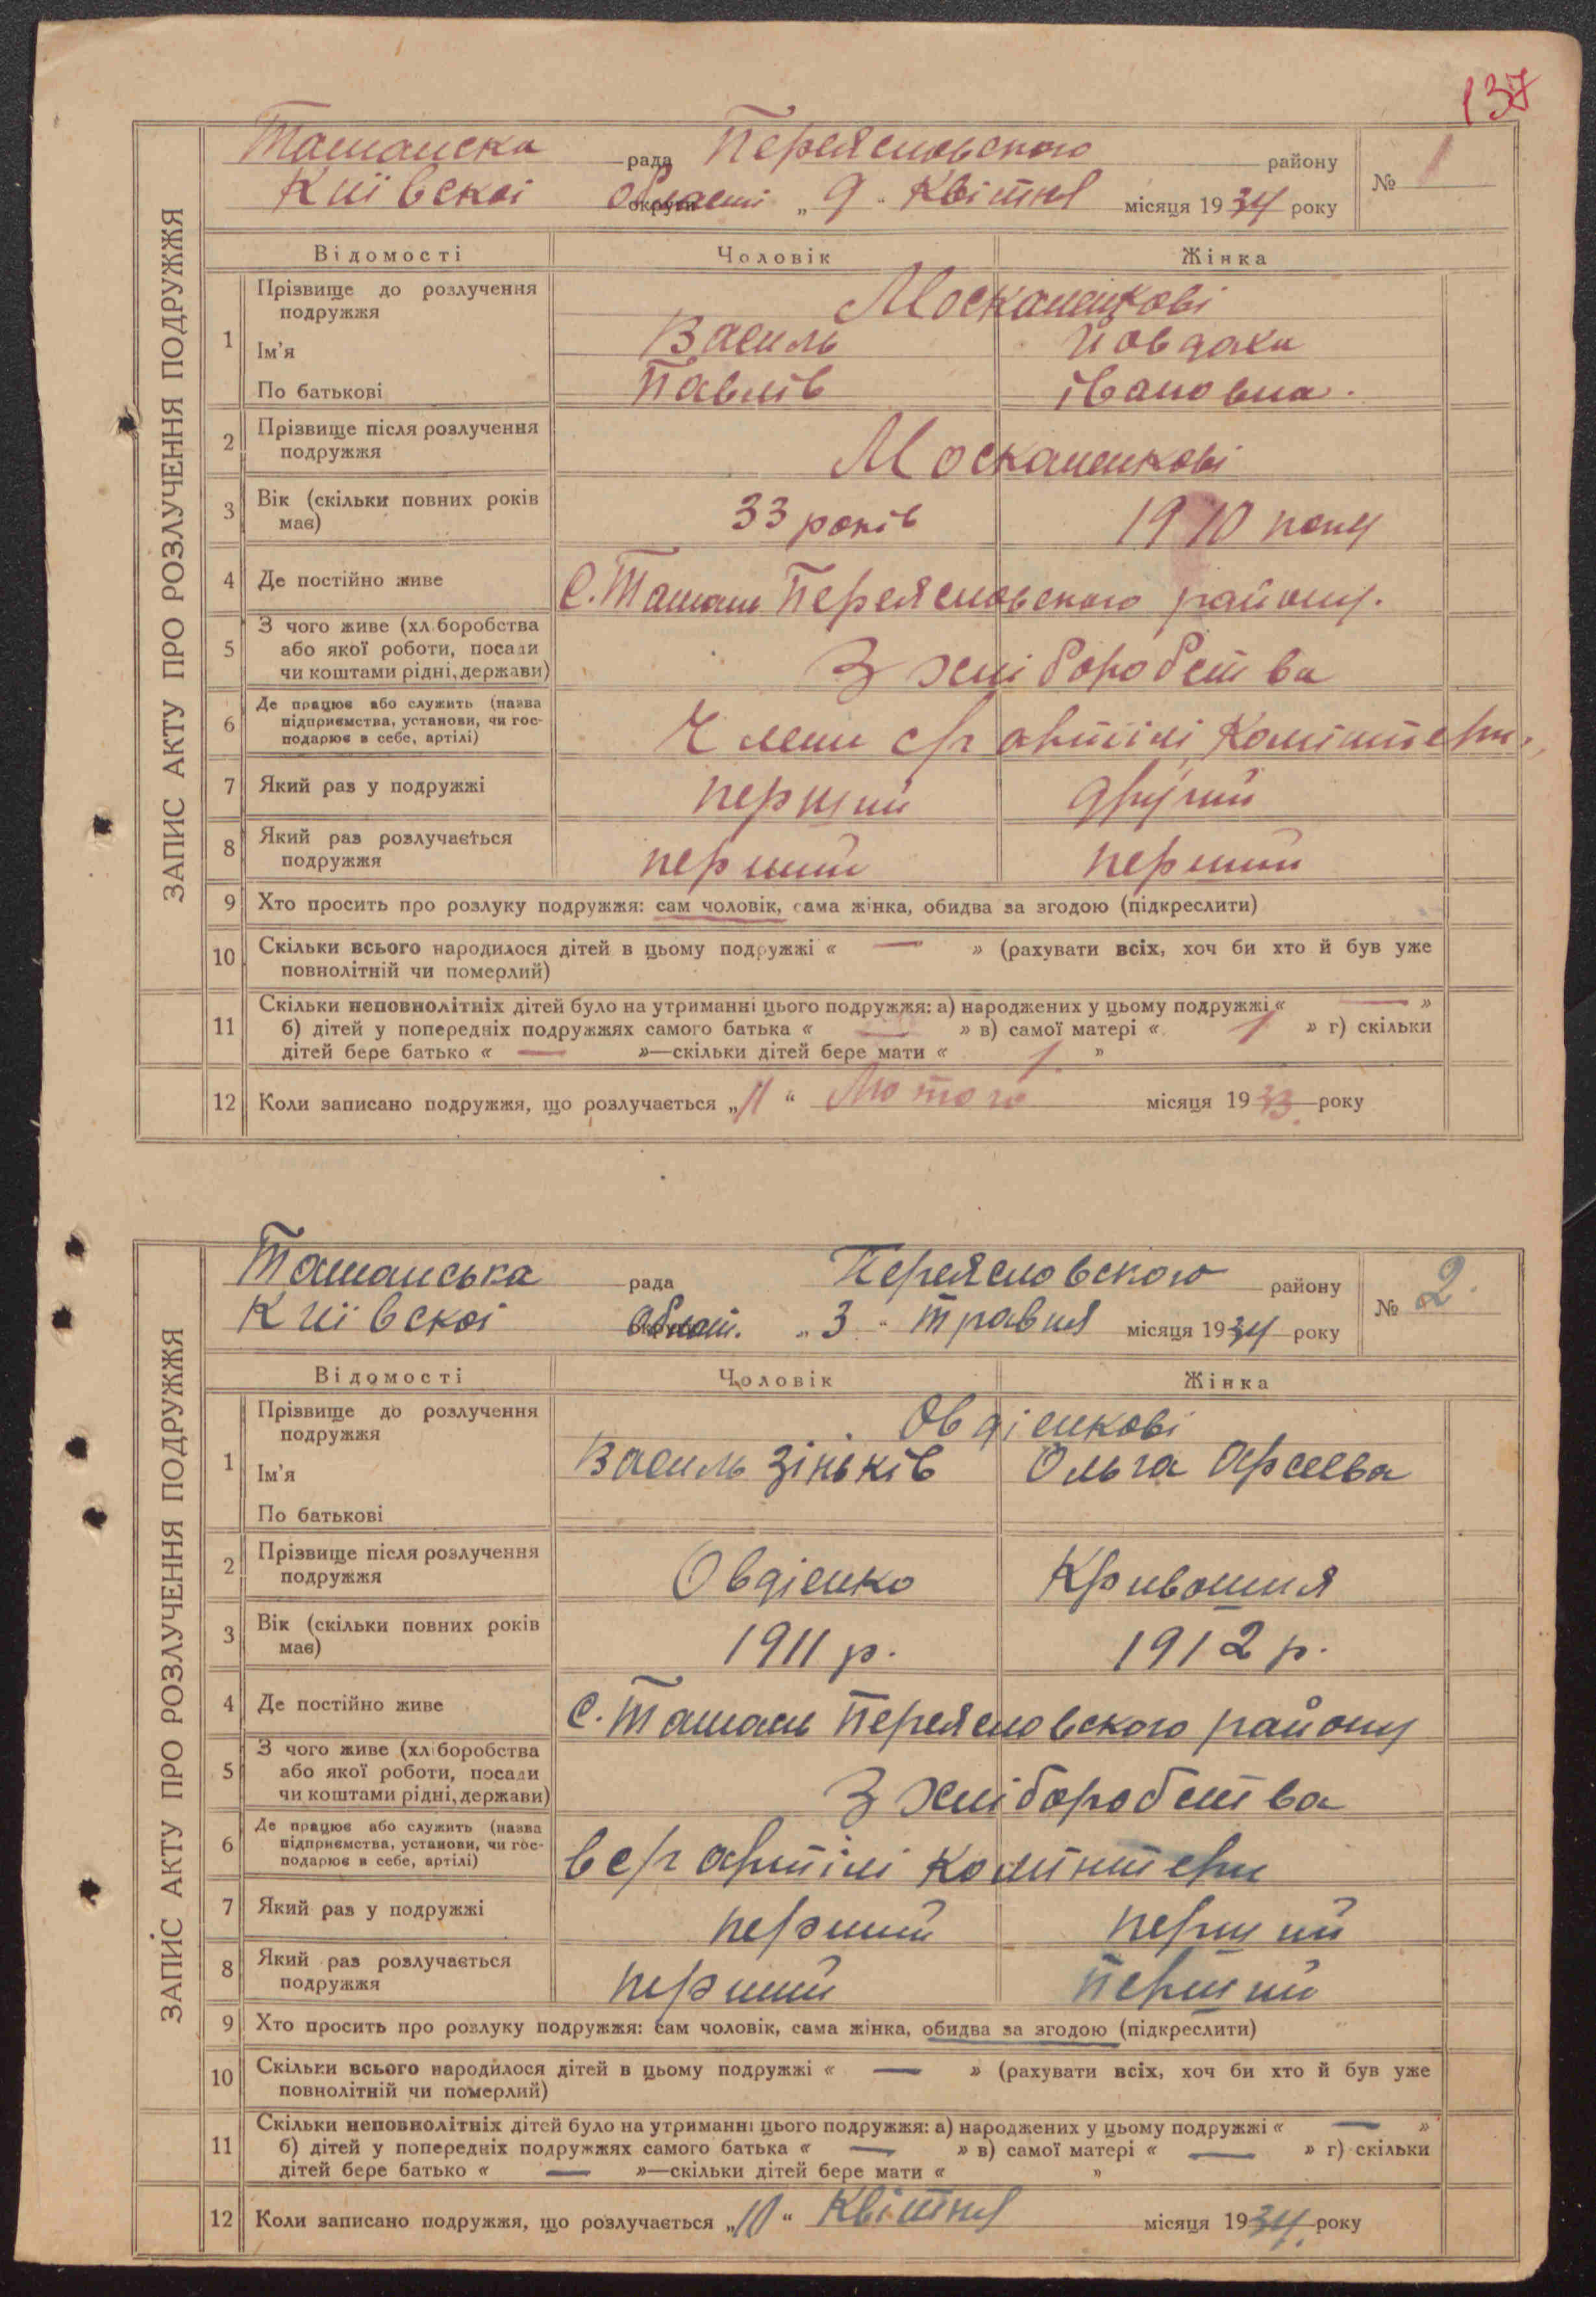 137
ЗАПИС АКТУ ПРО РОЗЛУЧЕННЯ ПОДРУЖЖЯ
Ташанска рада Переясловского району
№ 1
Київскоі округи області „ 9 “ Квітня місяця 1934 року
Відомості Чоловік Жінка
1 Прізвище до розлучення подружжя Москаленкові
Ім'я Василь Йовдоха
По батькові Павлів івановна.
2 Прізвище після розлучення подружжя Москаленкові
3 Вік (скільки повних років має) 33 років 1910 року
4 Де постійно живе С. Ташань Переясловского району.
5 З чого живе (хліборобства
або якої роботи, посади
чи коштами рідні, держави) З хліборобства
6 Де працює або служить (назва
підприємства, установи, чи гос-
подарює в себе, артілі) Члени с/г артілі Комінтерн
7 Який раз у подружжі перший другий
8 Який раз розлучається
подружжя перший перший
9 Хто просить про розлуку подружжя: сам чоловік, сама жінка, обидва за згодою (підкреслити)
10 Скільки всього народилося дітей в цьому подружжі « — » (рахувати всіх, хоч би хто й був уже
повнолітній чи померлий)
11 Скільки неповнолітніх дітей було на утриманні цього подружжя: а) народжених у цьому подружжі « — »
б) дітей у попередніх подружжях самого батька « — » в) самої матері « 1 » г) скільки
дітей бере батько « — »—скільки дітей бере мати « 1 »
12 Коли записано подружжя, що розлучається „11“ Лютого місяця 1933 року
ЗАПИС АКТУ ПРО РОЗЛУЧЕННЯ ПОДРУЖЖЯ
Ташанська рада Переясловского району
№ 2.
Київскоі област. „ 3 “ травня місяця 1934 року
Відомості Чоловік Жінка
1 Прізвище до розлучення
подружжя Овдієнкові
Ім'я Василь Зіньків Ольга Арсеєва
По батькові
2 Прізвище після розлучення
подружжя Овдієнко Кривошия
3 Вік (скільки повних років
має) 1911 р. 1912 р.
4 Де постійно живе С. Ташань Переясловского району
5 З чого живе (хліборобства
або якої роботи, посади
чи коштами рідні, держави) З хліборобства
6 Де працює або служить (назва
підприємства, установи, чи гос-
подарює в себе, артілі) в с/г артілі Комінтерн
7 Який раз у подружжі перший перший
8 Який раз розлучається
подружжя перший перший
9 Хто просить про розлуку подружжя: сам чоловік, сама жінка, обидва за згодою (підкреслити)
10 Скільки всього народилося дітей в цьому подружжі « — » (рахувати всіх, хоч би хто й був уже
повнолітній чи померлий)
11 Скільки неповнолітніх дітей було на утриманні цього подружжя: а) народжених у цьому подружжі « — »
б) дітей у попередніх подружжях самого батька « — » в) самої матері « — » г) скільки
дітей бере батько « — »—скільки дітей бере мати « »
12 Коли записано подружжя, що розлучається „10“ Квітня місяця 1934. року